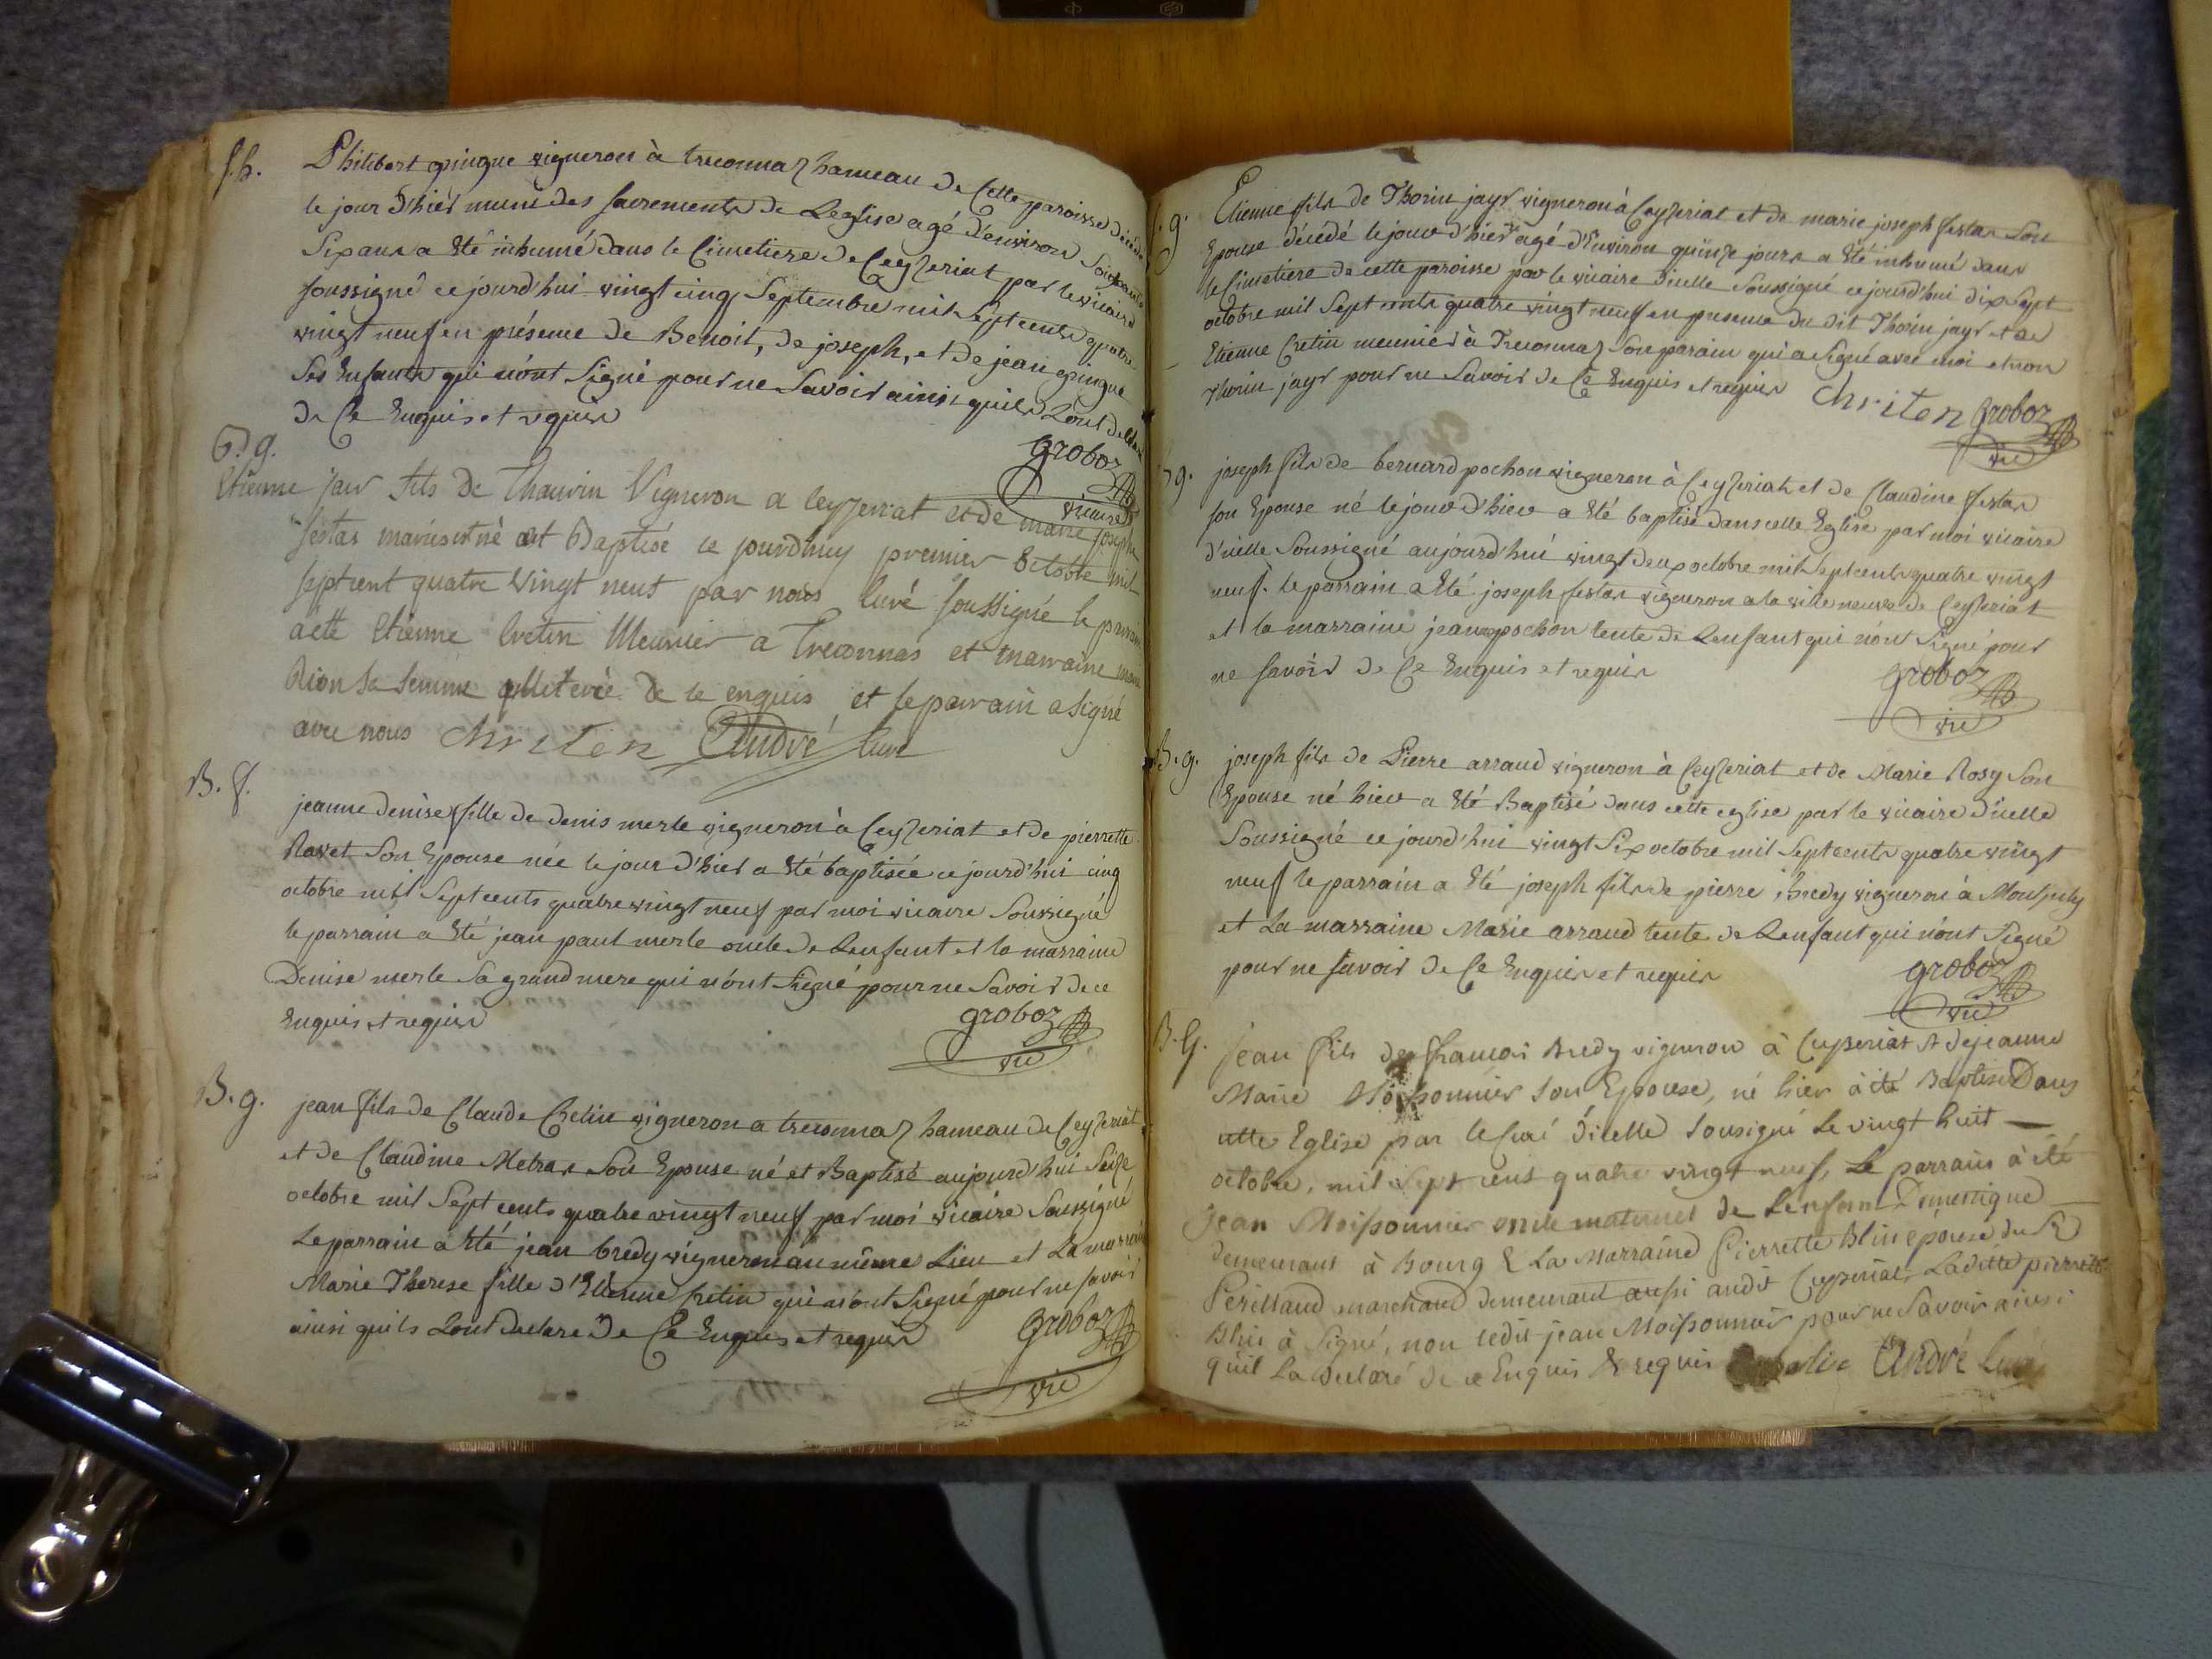 S.h. Philibert gringue vigneron à treconnaz hameau de Cette paroisse décédé
le jour d'hier muni des sacrements de Leglise agé d'environ soixante
Six ans a Eté inhumé dans le Cimetiere de Ceyzeriat par le vicaire
soussigné ce jourd'hui vingt cinq Septembre mil Sept cents quatre
vingt neuf en présence de Benoit, de joseph, et de jean gringue
Ses Enfants qui n'ont Signé pour ne Savoir ainsi quils Lont déclaré
de Ce Enquis et requis
groboz
vicaire
B. g.
Etienne jair fils de Thaurin Vigneron a ceyzeriat et de marie josephe
festas mariés est né et Baptisé ce jourdhuy premier octobre mil
sept cent quatre vingt neuf par nous Curé soussigné le parrain
a été Etienne Cretin Meunier a treconnas et marraine marie
Dion sa femme illeterée de ce enquis et le parrain a signé
avec nous Chriten André Curé
B. f.
jeanne denise fille de denis merle vigneron à Ceyzeriat et de pierrette
Ravet Son Epouse née le jour d'hier a Eté baptisée ce jourd'hui cinq
octobre mil Sept cents quatre vingt neuf par moi vicaire Soussigné
le parrain a Eté jean paul merle oncle de Lenfant et la marraine
Denise merle Sa grand mere qui n'ont Signé pour ne Savoir de ce
Enquis et requis
groboz
vic
B. g. jean fils de Claude Cretin vigneron a treconnaz hameau de Ceyzeriat
et de Claudine Metras Son Epouse né et Baptisé aujourd'hui Seize
octobre mil Sept cents quatre vingt neuf par moi vicaire Soussigné
Le parrain a Eté jean bredy vigneron au même Lieu et La marraine
Marie Therese fille d'Etienne Cretin qui n'ont Signé pour ne savoir
ainsi quils Lont declaré de Ce Enquis et requis groboz
vic
S. g. Etienne fils de Thorin jayr vigneron à Ceyzeriat et de marie joseph festas Son
Epouse décédé le jour d'hier agé d'Environ quinze jours a Eté inhumé dans
le Cimetiere de cette paroisse par le vicaire d'icelle Soussigné ce jourd'hui dix Sept
octobre mil Sept cents quatre vingt neuf en presence du dit Thorin jayr et de
Etienne Cretin meunier à Treconnaz Son parain qui a Signé avec moi et non
Thorin jayr pour ne Savoir de Ce Enquis et requis Chriten groboz
vic
B. g. joseph fils de bernard pochon vigneron à Ceyzeriat et de Claudine festas
son Epouse né le jour d'hier a Eté baptisé dans celle Eglise par moi vicaire
d'icelle Soussigné aujourd'hui vingt deux octobre mil Sept cents quatre vingt
neuf. le parrain a Eté joseph festas vigneron a la ville neuve de Ceyzeriat
et la marraine jeanne pochon tente de Lenfant qui n'ont Signé pour
ne savoir de Ce Enquis et requis
groboz
vic
B. g. joseph fils de Pierre arraud vigneron à Ceyzeriat et de Marie Rosy Son
Epouse né hier a Eté Baptisé dans cette eglise par le vicaire d'icelle
Soussigné ce jourd'hui vingt Six octobre mil Sept cents quatre vingt
neuf le parrain a Eté joseph fils de pierre bredy vigneron à
et La marraine Marie arraud tente de Lenfant qui n'ont Signé
pour ne savoir de Ce Enquis et requis
groboz
vic
B. G. Jean fils de francois Bredy vigneron à Ceyseriat & de jeanne
Marie Moissonnier son Epouse, né hier à été Baptisé Dans
cette Eglise par le Curé d'icelle sousigné le vingt huit
octobre, mil sept cens quatre vingt neuf, Le parrain à été
Jean Moissonnier oncle maternel de Lenfant Domestique
demeurant à Bourg & La Marraine Pierrette Blin épouse du Sr
Perillaud marchand demeurant aussi audit Ceyseriat, Laditte pierrette
Blin à signé, non ledit jean Moissonnier pour ne Savoir ainsi
quil La declaré de ce Enquis & requis André Curé